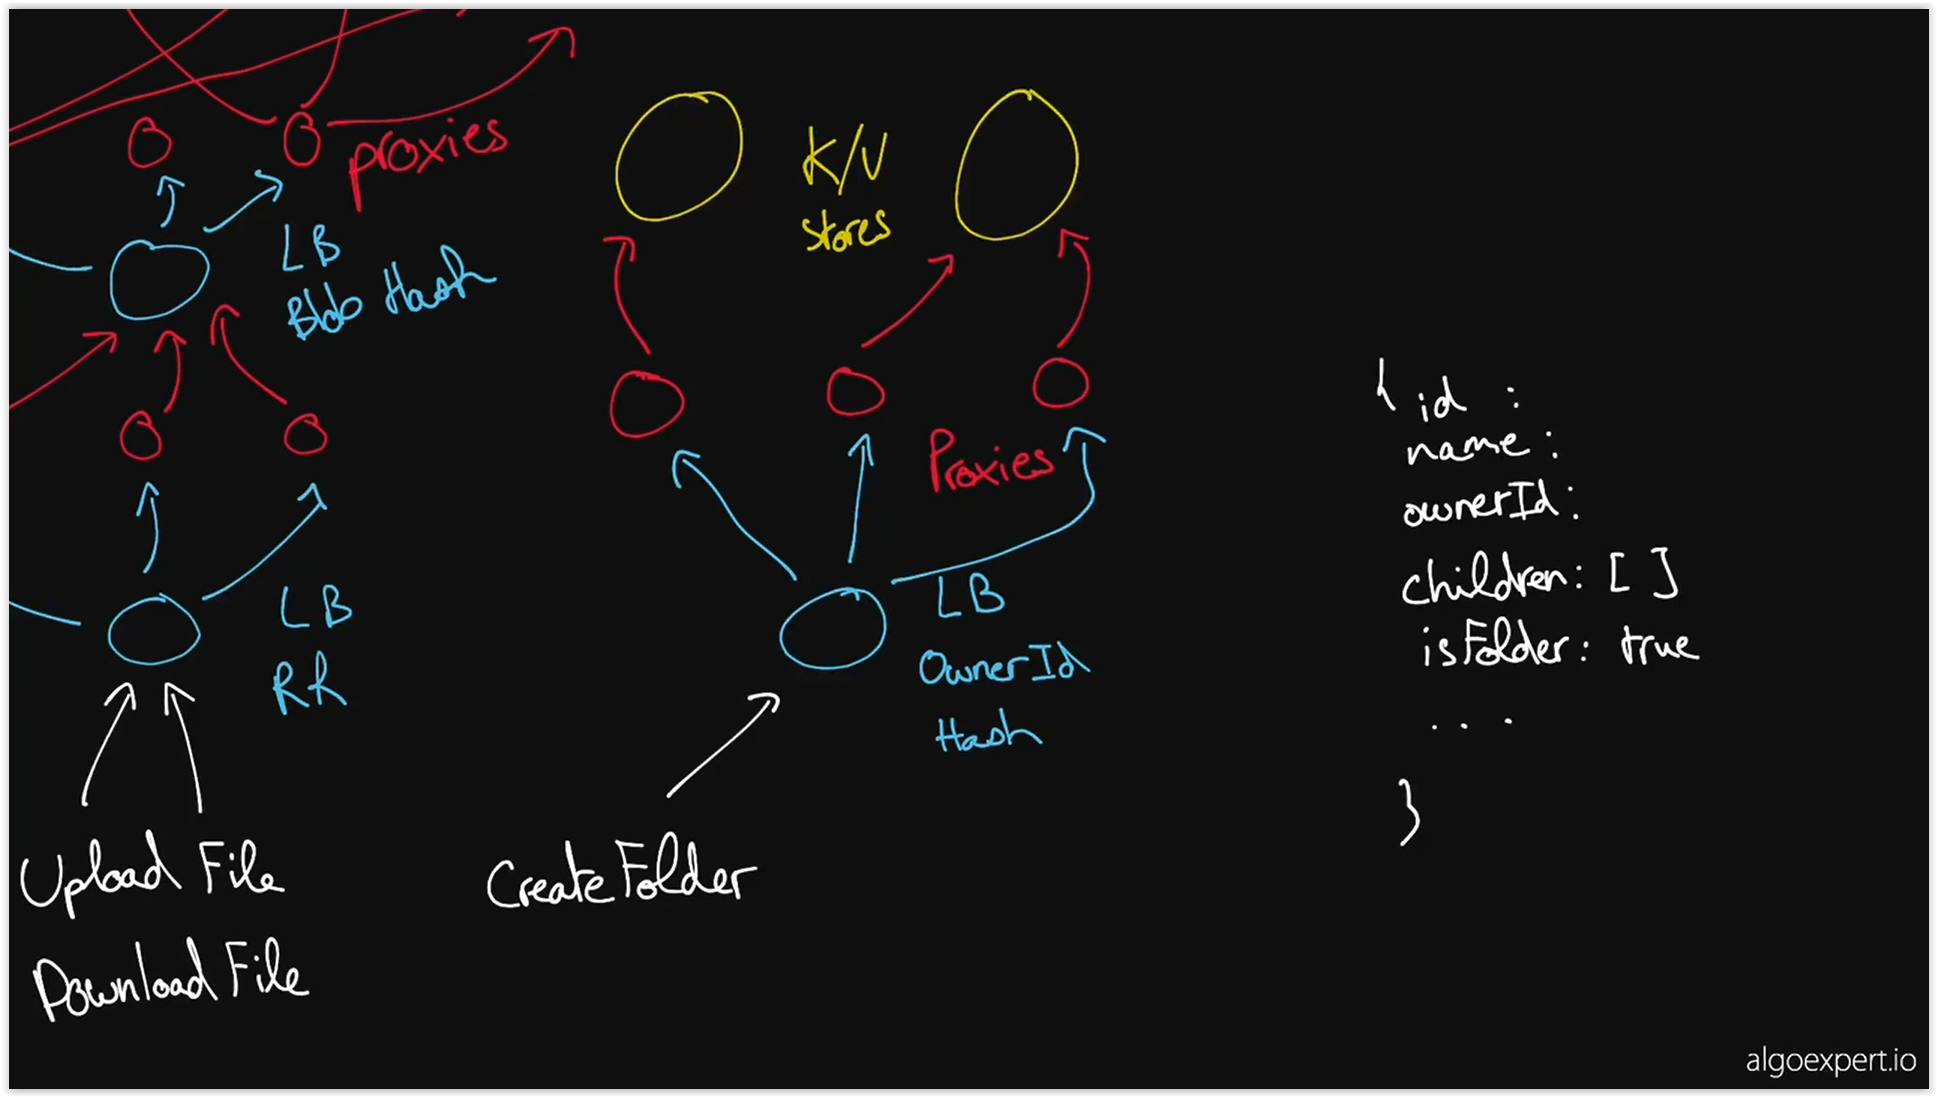 proxies
LB
Blob Hash
LB
RR
Upload File
Download File
K/V
stores
Proxies
LB
OwnerId
Hash
CreateFolder
{ id :
name :
ownerId :
children : [ ]
isFolder : true
. . .
}
algoexpert.io